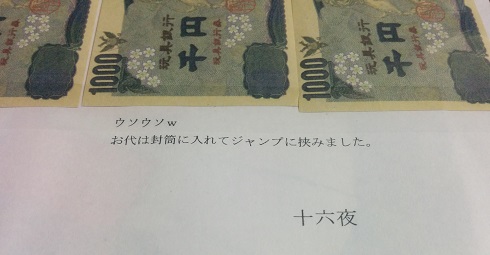 玩具銀行券
千円
1000
玩具銀行券
千円
1000
ウソウソｗ
お代は封筒に入れてジャンプに挟みました。
十六夜